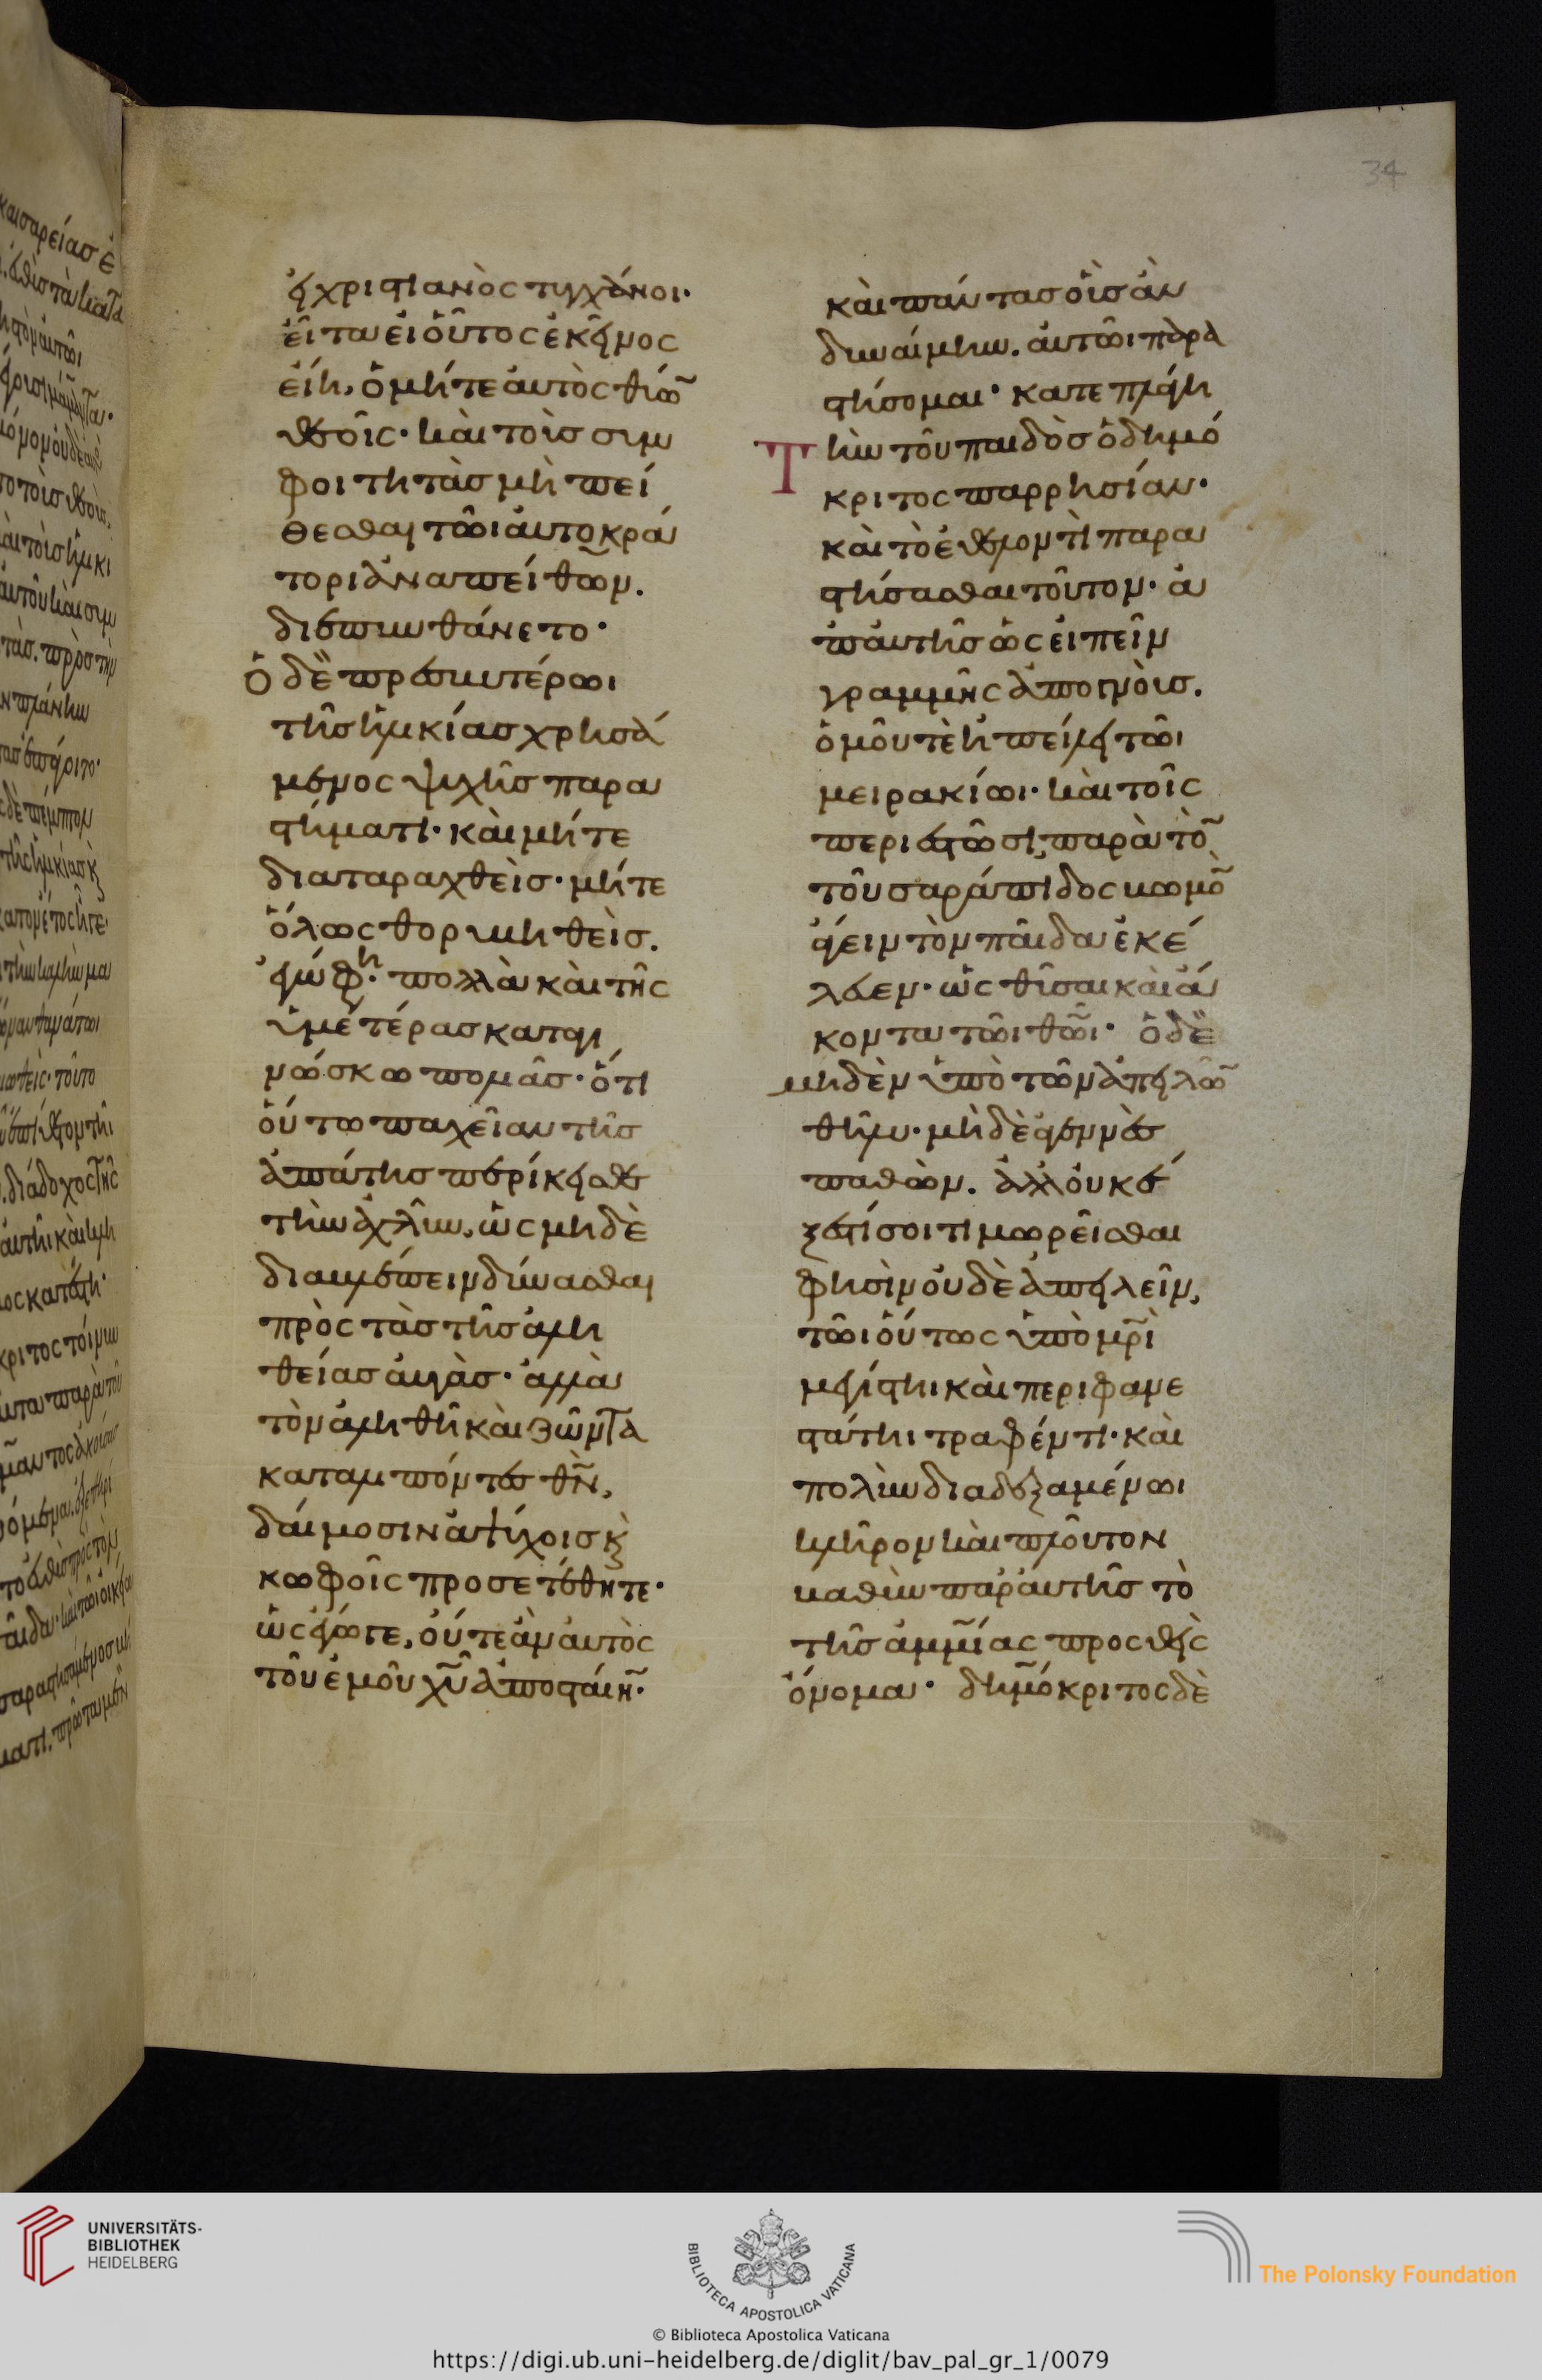 34
εἰ χριστιανὸς τυγχάνοι·
εἶτα εἰ οὗτος ἐκεῖνος
εἴη, ὁ μήτε αὐτὸς θύω῀
θεοῖς· καὶ τοῖς συμ
φοιτητὰς μὴ πεί
θεσθαι τῶι αὐτοκρά
τορι ἀναπείθων.
διεπυνθάνετο·
ὁ δὲ πρεσβυτέρωι
τῆς ἡλικίας χρησά
μενος ψυχῆς παρα
στήματι· καὶ μήτε
διαταραχθεὶς· μήτε
ὅλως θορυβηθεὶς.
ἐγώ φη· πολλὰ καὶ τῆς
ὑμετέρας καταγι
νώσκω πλάνας· ὅτι
οὕτω παχεῖαν τῆς
ἀπάτης περίκεισθε
τὴν ἀχλὺν, ὡς μηδὲ
διαβλέπειν δύνασθαι
πρὸς τὰς τῆς ἀλη
θείας αὐγὰς· ἀλλὰ
τὸν ἀληθῆ καὶ ζῶντα
καταλιπόντες θν,
δαίμοσιν ἀψύχοις κ
κωφοῖς προσετέθητε·
ὡς ἔγωγε, οὔτε ἂν αὐτὸς
τοῦ ἐμοῦ χυ ἀποσταίη῀·
καὶ πάντας οἷς ἂν
δυναίμην. αὐτῶι παρα
στήσομαι· κατεπλάγη
Τὴν τοῦ παιδὸς ὁ δημό
κριτος παρρησίαν·
καὶ τὸ ἐθέλοντὶ παρα
στήσασθαι τοῦτον· ἀ
π αὐτῆς ὡς εἰπεῖν
γραμμῆς ἀποινοις.
ὁμοῦ τὲ ἠπείλει τῶι
μειρακίωι· καὶ τοῖς
περιεστῶσι, παρὰ τὸ῀
τοῦ σαράπιδος βωμὸ῀
ἄγειν τὸν παῖδα ἐκέ
λευεν· ὡς θῦσαι καὶ ἄ
κοντα τῶι θῶι· ὁ δὲ
μηδὲν ὑπὸ τῶν ἀπειλῶ῀
θῆλυ· μὴ δὲ ἀγεννὲς
παθὼν. ἀλλ οὐκ ἔ
ξεστί σοι τιμωρεῖσθαι
φησὶν οὐδὲ ἀπειλεῖν,
τῶι οὕτως ὑπὸ μρὶ
μεγίστηι καὶ περιφανε
στάτηι τραφέντι· καὶ
πολλὺν διαδεξαμένωι
κλῆρον καὶ πλοῦτον
καθὴν παρ αὐτῆς τὸ
τῆς ἀμμίας προσθεὶς
ὄνομα· δημόκριτος δὲ
UNIVERSITÄTS-
BIBLIOTHEK
HEIDELBERG
BIBLIOTECA APOSTOLICA VATICANA
The Polonsky Foundation
© Biblioteca Apostolica Vaticana
https://digi.ub.uni-heidelberg.de/diglit/bav_pal_gr_1/0079